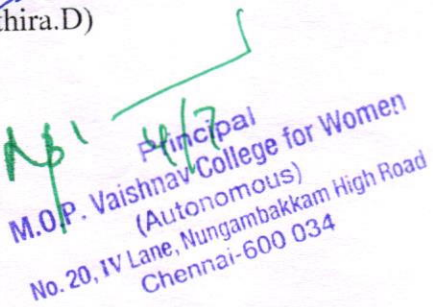 thira.D)
4/7
Principal
M.O.P. Vaishnav College for Women
(Autonomous)
No. 20, IV Lane, Nungambakkam High Road
Chennai-600 034